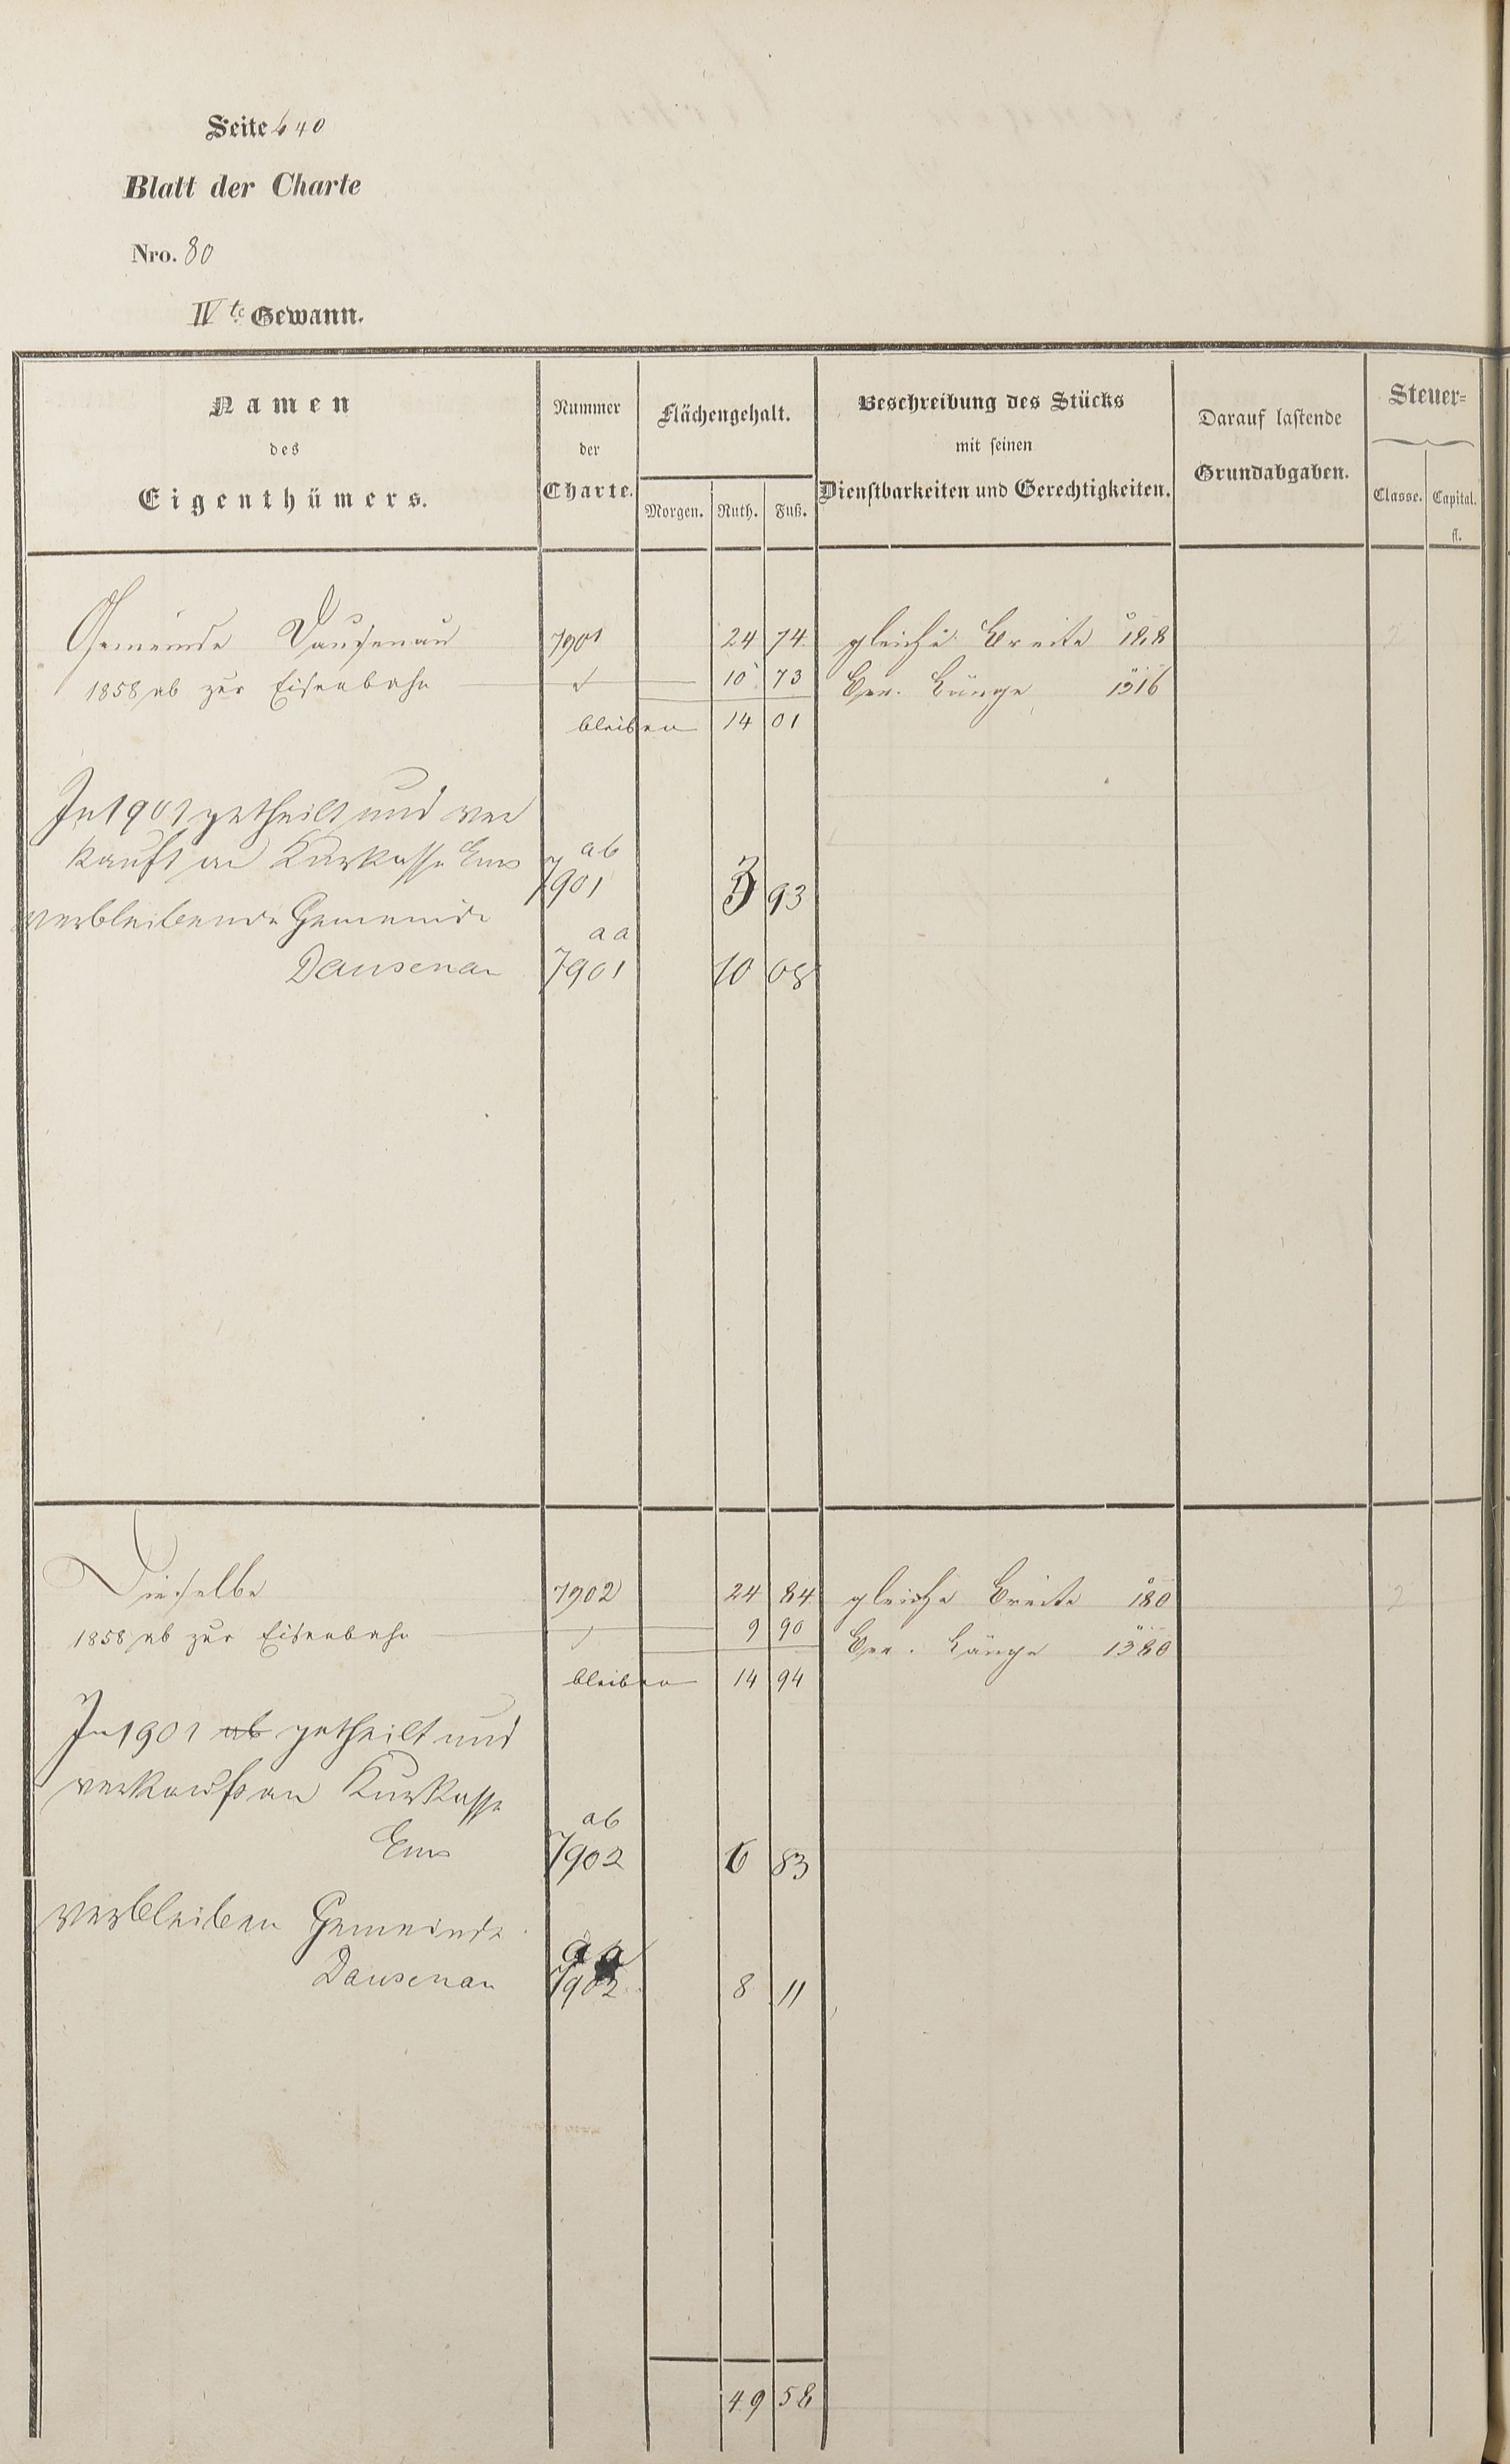 Seite 640
Blatt der Charte
Nro. 80
IVte Gewann.
Namen des Eigenthümers.
Nummer der Charte.
Flächengehalt.
Morgen. Ruth. Fuß.
Beschreibung des Stücks mit seinen Dienstbarkeiten und Gerechtigkeiten.
Darauf lastende Grundabgaben.
Steuer=
Classe. Capital. fl.
Gemeinde Dausenau 7901 24 74 gleiche Breite 188
1858 ab zur Eisenbahn 10 73 Ger. Länge 1316
bleiben 14 01
In 1901 getheilt und ver
kauft an Kurkasse Ems ab 7901 3 93
verbleibende Gemeinde
Dausenau aa 7901 10 08
Dieselbe 7902 24 84 gleiche Breite 180 2
1858 ab zur Eisenbahn 9 90 Ger. Länge 1380
bleiben 14 94
In 1901 ab getheilt und
verkauft an Kurkasse
Ems ab 7902 6 83
verbleiben Gemeinde
Dausenau aa 7902 8 11
49 58